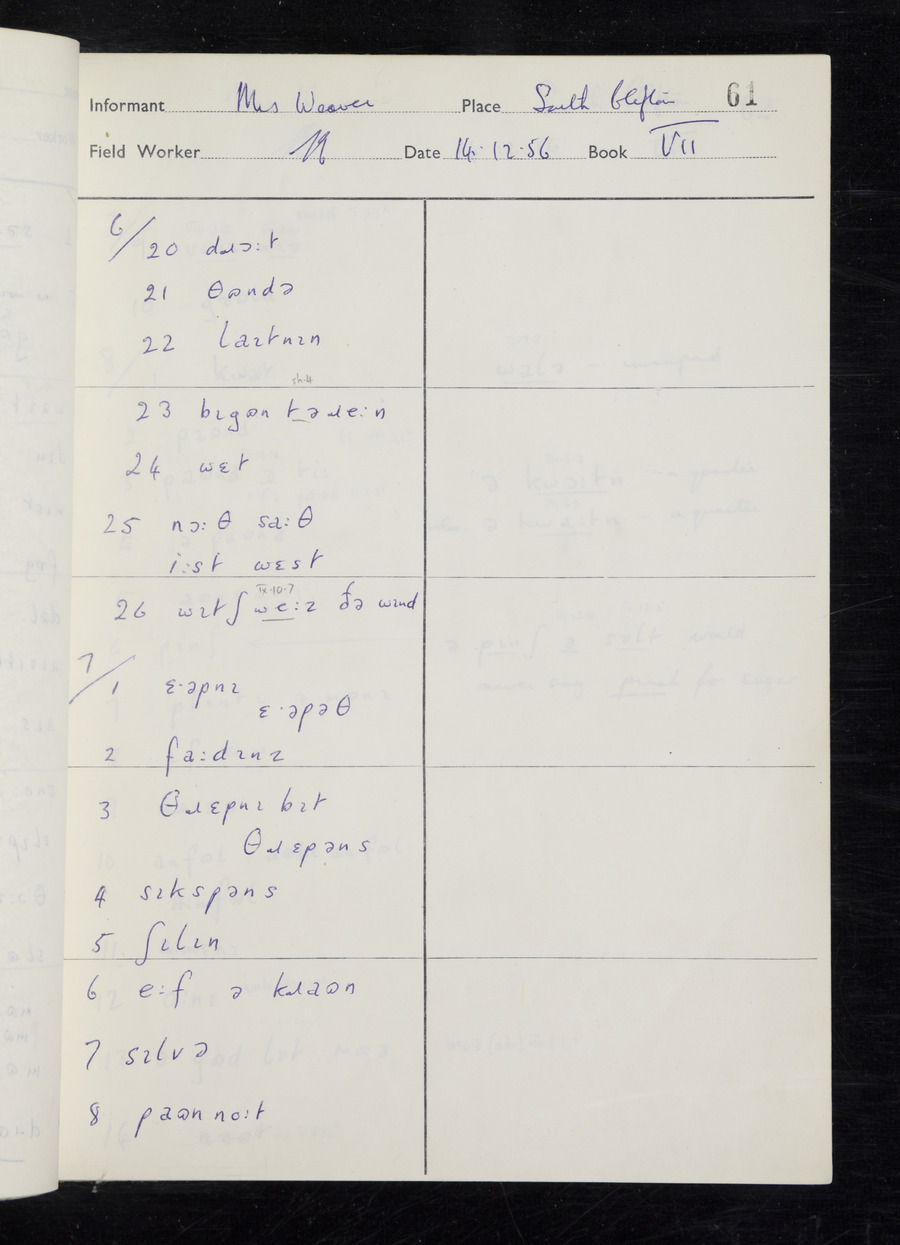 Informant Mrs Weaver Place South Clifton 61
Field Worker Date 14·12·56 Book VII
6/20 dɹɔ:t
21 θɷndə
22 laɪtnɪn
sh·4
23 bɪgɷn tə ɹe:n
24 wɛt
25 nɔ:θ sa:θ
i:st wɛst
IX·10·7
26 wɪtʃ we:z ðə wɪnd
7/1 ɛ·əpnɪ
ɛ·əpəθ
2 fa:dɪnz
3 θɹɛpnɪ bɪt
θɹɛpəns
4 sɪkspəns
5 ʃɪlɪn
6 e:f ə kɹaɷn
7 sɪlvə
8 paɷn no:t